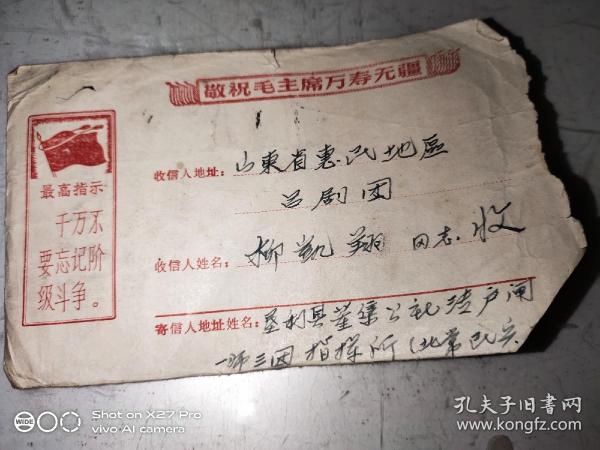 敬祝毛主席万寿无疆
最高指示
千万不
要忘记阶
级斗争。
收信人地址：山東省惠民地區
吕剧团
收信人姓名：柳凯翔 同志 收
寄信人地址姓名：垦利县 公社 户闸
一师三团指挥所
WIDE
Shot on X27 Pro
vivo AI camera
孔夫子旧书网
kongfz.com